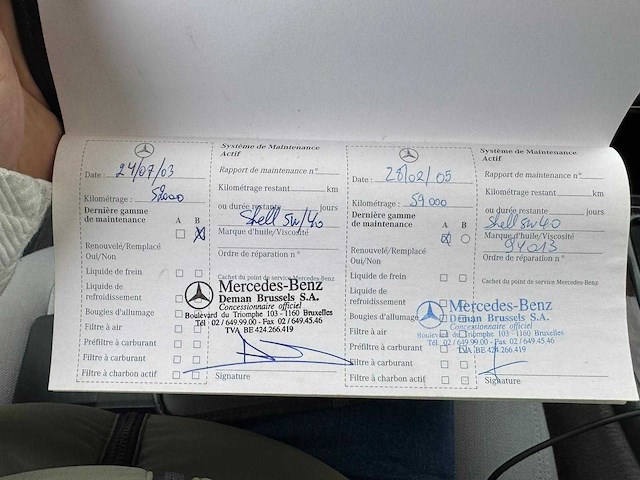 Date : 24/07/03
Kilométrage : 52000
Dernière gamme
de maintenance
A B
Renouvelé/Remplacé
Oui/Non
Liquide de frein
Liquide de
refroidissement
Bougies d'allumage
Filtre à air
Préfiltre à carburant
Filtre à carburant
Filtre à charbon actif
Système de Maintenance
Actif
Rapport de maintenance n°
Kilométrage restant km
ou durée restante jours
Shell 5w/40
Marque d'huile/Viscosité
Ordre de réparation n°
Cachet du point de service Mercedes-Benz
Mercedes-Benz
Deman Brussels S.A.
Concessionnaire officiel
Boulevard du Triomphe 103 - 1160 Bruxelles
Tél. 02 / 649.99.00 - Fax 02 / 649.45.46
TVA BE 424.266.419
Signature
Date : 28/02/05
Kilométrage : 59000
Dernière gamme
de maintenance
A B
Renouvelé/Remplacé
Oui/Non
Liquide de frein
Liquide de
refroidissement
Bougies d'allumage
Filtre à air
Préfiltre à carburant
Filtre à carburant
Filtre à charbon actif
Système de Maintenance
Actif
Rapport de maintenance n°
Kilométrage restant km
ou durée restante jours
Shell 5w40
Marque d'huile/Viscosité
94013
Ordre de réparation n°
Cachet du point de service Mercedes-Benz
Mercedes-Benz
Deman Brussels S.A.
Concessionnaire officiel
Boulevard du Triomphe 103 - 1160 Bruxelles
Tél. 02 / 649.99.00 - Fax 02 / 649.45.46
TVA BE 424.266.419
Signature